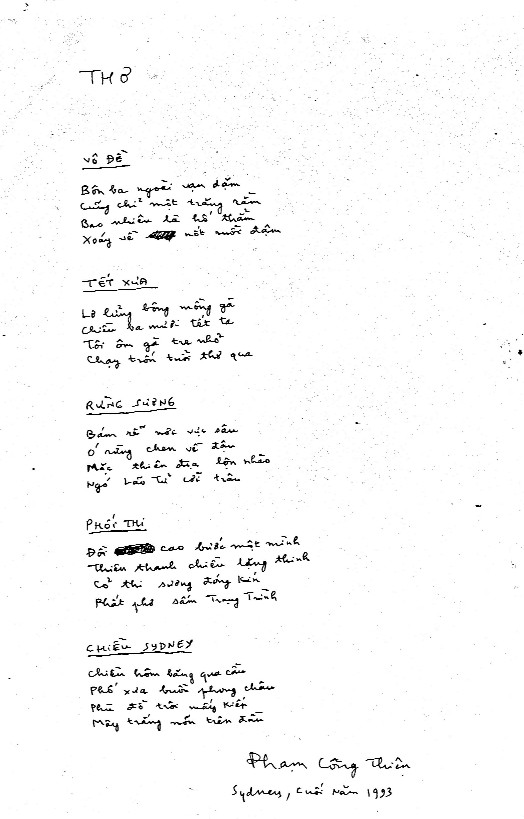 THƠ
VÔ ĐỀ
Bôn ba ngoài vạn dặm
Cũng chỉ một trăng rằm
Bao nhiêu là hố thẳm
Xoáy về nốt ruồi đậm
TẾT XƯA
Lơ lửng bông mồng gà
Chiều ba mươi tết ta
Tôi ôm gà tre nhỏ
Chạy trốn tuổi thơ qua
RỪNG SƯƠNG
Bám rễ nóc vực sâu
Ó rừng chen về đậu
Mặc thiên địa lộn nhào
Ngó Lão Tử cỡi trâu
PHỐI THI
Đồi cao bước một mình
Thiên thanh chiều lặng thinh
Cổ thi sương đóng kín
Phất phơ sấm Trạng Trình
CHIỀU SYDNEY
Chiều hôm băng qua cầu
Phố xưa buồn phong châu
Phù đồ trôi mấy kiếp
Mây trắng nổi trên đầu
Phạm Công Thiện
Sydney, cuối năm 1993